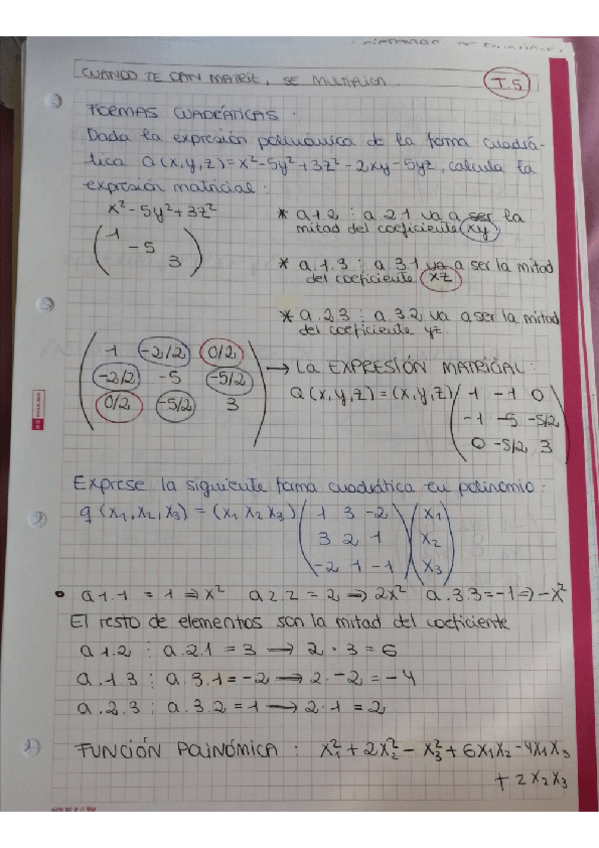 CUANDO TE DAN MATRIZ, SE MULTIPLICA
T.5
FORMAS CUADRÁTICAS:
Dada la expresión polinómica de la forma cuadrá-
tica Q(x,y,z)=x²-5y²+3z²-2xy-5yz, calcula la
expresión matricial:
x²-5y²+3z²
1
-5
3
* a.1.2 : a.2.1 va a ser la
mitad del coeficiente xy
* a.1.3 : a.3.1 va a ser la mitad
del coeficiente xz
* a.2.3 : a.3.2 va a ser la mitad
del coeficiente yz.
1 -2/2 0/2
-2/2 -5 -5/2
0/2 -5/2 3
→ La EXPRESIÓN MATRICIAL:
Q(x,y,z)=(x,y,z) (1 -1 0
-1 -5 -5/2
0 -5/2 3)
Exprese la siguiente forma cuadrática en polinomio:
q(x₁,x₂,x₃) = (x₁ x₂ x₃) (1 3 -2) (x₁)
3 2 1 x₂
-2 1 -1 x₃
• a.1.1 = 1 ⇒ x² a.2.2 = 2 ⇒ 2x² a.3.3=-1 ⇒ -x²
El resto de elementos son la mitad del coeficiente
a.1.2 : a.2.1 = 3 → 2·3=6
a.1.3 : a.3.1=-2 → 2·-2=-4
a.2.3 : a.3.2=1 → 2·1=2
FUNCIÓN POLINÓMICA : x₁²+2x₂²-x₃²+6x₁x₂-4x₁x₃
+2x₂x₃